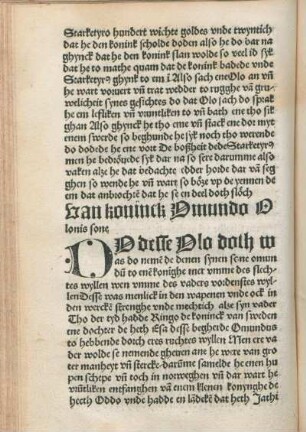 Starketyro hundert wichte goldes vnde twyntich
dat he den konink scholde doden also he do dar na
ghynck dat he den konink slan wolde so veel id syk
dat he to mathe quam dat de konink badede vnde
Starketyrꝰ ghynk to em i Also sach ene Olo an vñ
he wart voruert vñ trat wedder to rugghe vā gru-
welicheit synes gesichtes do dat Olo sach do sprak
he em lefliken vñ vruntliken to vñ bath ene tho sik
ghan Also ghynck he tho ene vñ stack ene dor myt
enem swerde so beghunde he syk noch tho werende
do dodede he ene vort De boszheit dede Starketyrꝰ
men he bedröuede syk dar na so sere darumme also
vaken alze he dat bedachte edder horde dar vā seg
ghen so wende he vñ wart so böze vp de yennen de
em dat anbrochtē dat he se en deel doth sloch
Van koninck Omundo O
lonis sone
DO desse Olo doth w
as do nemē de denen synen sone omun
dū to enē konighe mer vmme des slech-
tes wyllen wen vmme des vaders vordenstes wyl-
len Desse was menlick in den wapenen vnde ock in
den wercke strenghe vnde mechtich alse syn vader
Tho der tyd hadde Ringo de konink van sweden
ene dochter de heth Esa desse begherde Omundus
to hebbende dorch eres ruchtes wyllen Men ere va
der wolde se nemende gheuen ane he ware van gro-
ter manheyt vñ stercke darūme samelde he enen hu
pen schepe vñ toch in norweghen vñ dar wart he
vrutliken entfanghen vā enem klenen konynghe de
heeth Oddo vnde hadde en lādekē dat heth Jathi